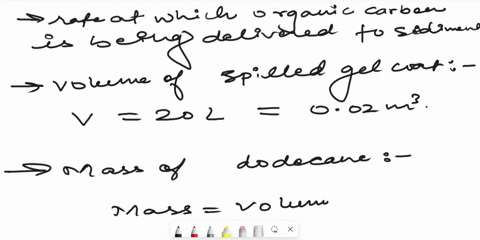 → rate at which organic carbon
is being delivered to sediment
→ volume of spilled gel coat :-
V = 20L = 0.02 m³.
→ Mass of dodecane :-
Mass = volum